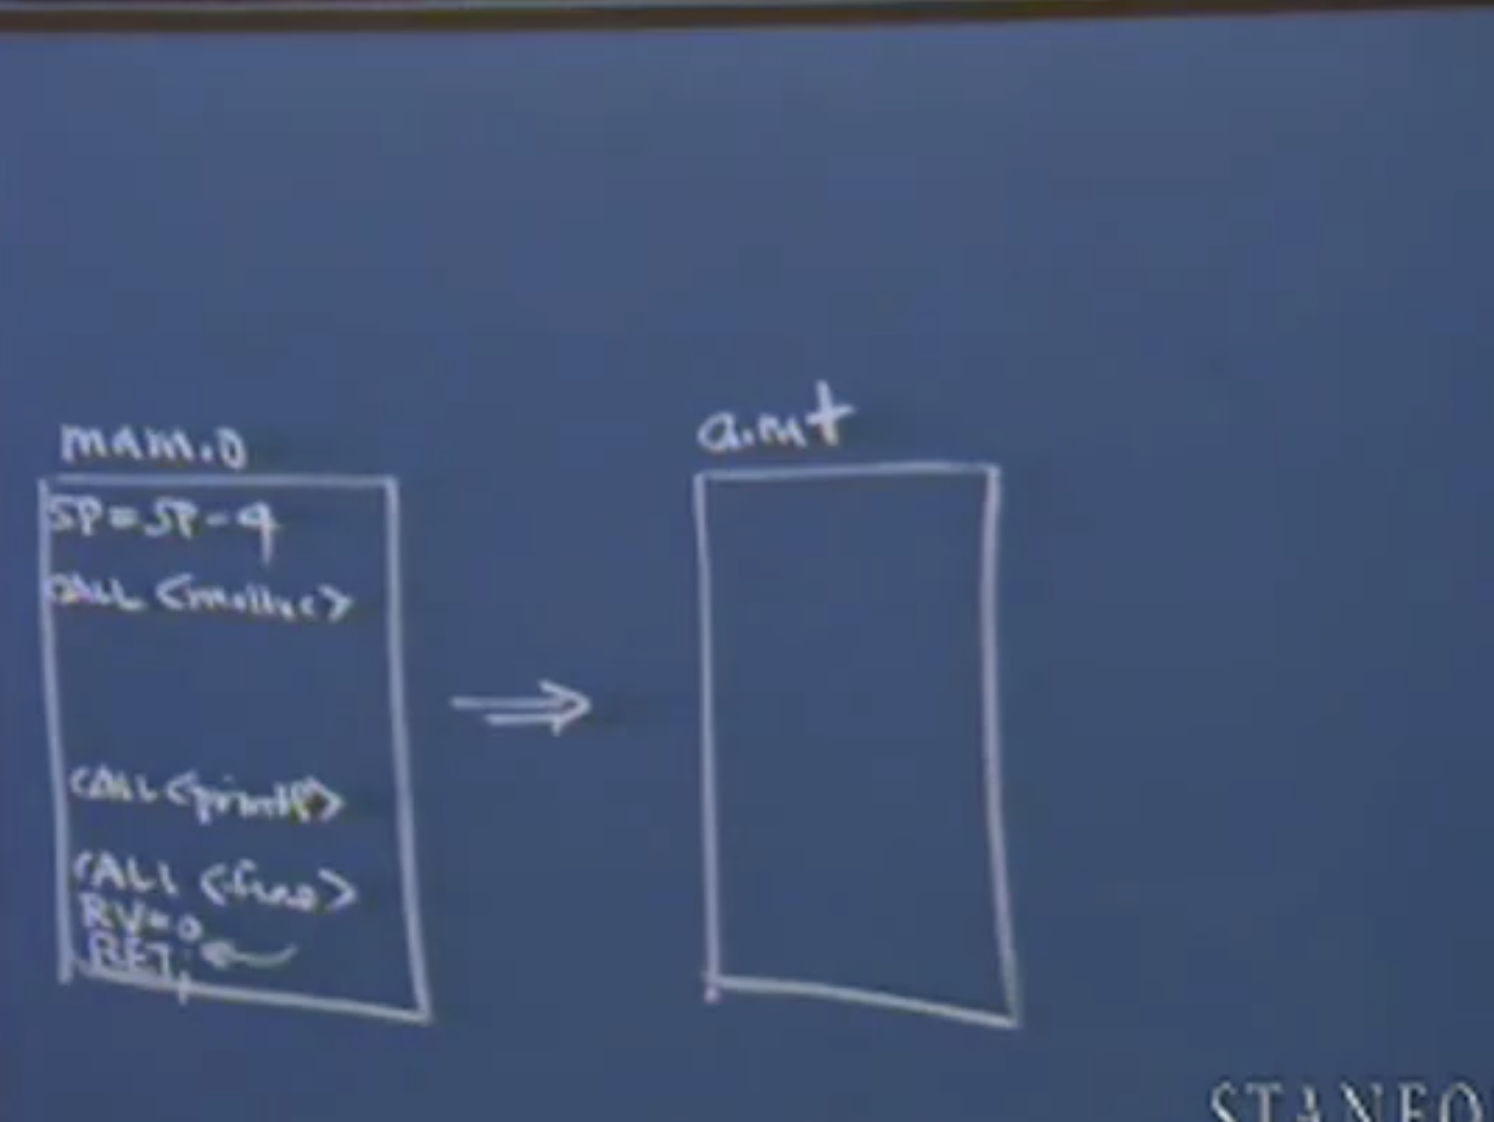 main.o
SP=SP-4
CALL <malloc>
CALL <printf>
CALL <free>
RV=0
RET;
a.out
STANFO